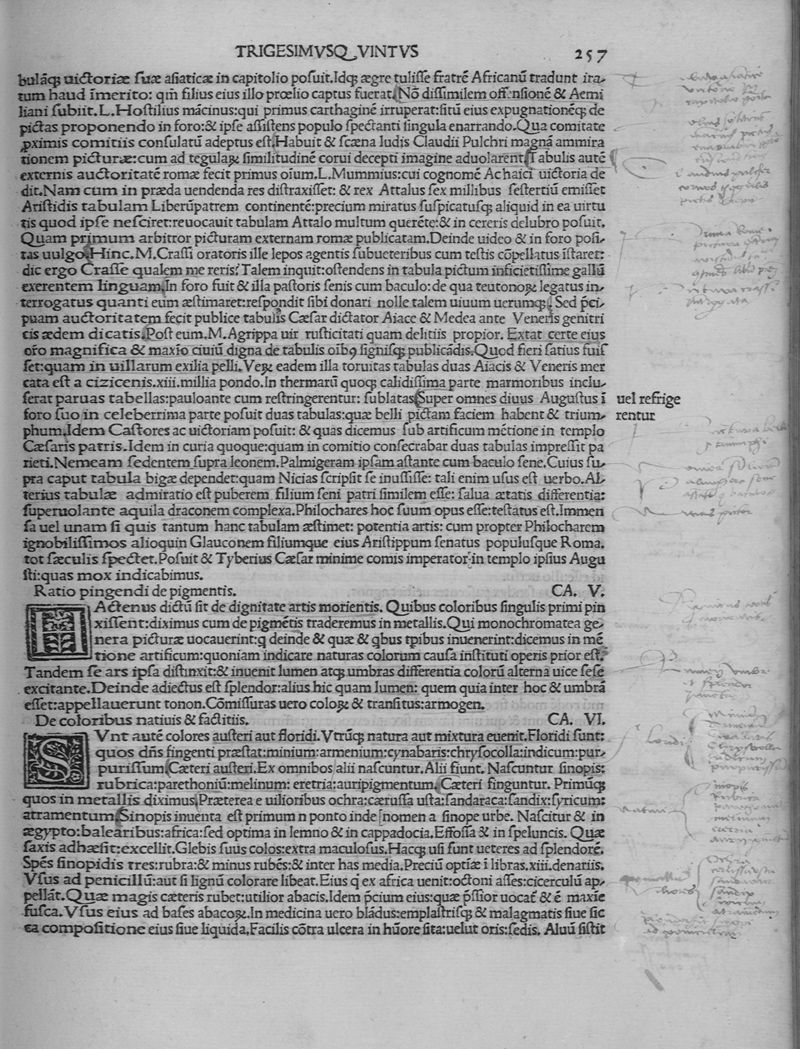 TRIGESIMVSQVINTVS 257
bulāq; uictoriæ suæ asiaticæ in capitolio posuit.Idq; ægre tulisse fratrē Africanū tradunt ira-
tum haud īmerito: qm̄ filius eius illo prœlio captus fuerat.Nō dissimilem offensionē & Aemi
liani subiit.L.Hostilius mācinus:qui primus carthaginē irruperat:sitū eius expugnationēq; de
pictas proponendo in foro:& ipse assistens populo spectanti singula enarrando.Qua comitate
ꝓximis comitiis consulatū adeptus est.Habuit & scæna ludis Claudii Pulchri magnā ammira
tionem picturæ:cum ad tegulaꝝ similitudinē corui decepti imagine aduolarent.Tabulis autē
externis auctoritatē romæ fecit primus oīum.L.Mummius:cui cognomē Achaici uictoria de
dit.Nam cum in præda uendenda res distraxisset:& rex Attalus sex millibus sestertiū emisset
Aristidis tabulam Liberūpatrem continentē:precium miratus suspicatusq; aliquid in ea uirtu
tis quod ipse nesciret:reuocauit tabulam Attalo multum querēte:& in cereris delubro posuit.
Quam primum arbitror picturam externam romæ publicatam.Deinde uideo & in foro posi-
tas uulgo.Hinc.M.Crassi oratoris ille lepos agentis subueteribus cum testis cōpellatus īstaret:
dic ergo Crasse qualem me reris?Talem inquit:ostendens in tabula pictum inficietissime gallū
exerentem linguam.In foro fuit & illa pastoris senis cum baculo:de qua teutonoꝝ legatus in-
terrogatus quanti eum æstimaret:respondit sibi donari nolle talem uiuum uerumq;. Sed p̄ci-
puam auctoritatem fecit publice tabulis Cæsar dictator Aiace & Medea ante Veneris genitri
cis ædem dicatis.Post eum.M.Agrippa uir rusticitati quam delitiis propior. Extat certe eius
oro magnifica & maxīo ciuiū digna de tabulis oībꝰ signisq; publicādis.Quod fieri satius fuis
set:quam in uillarum exilia pelli.Veꝝ eadem illa toruitas tabulas duas Aiacis & Veneris mer
cata est a cizicenis.xiii.millia pondo.In thermarū quoq; calidissima parte marmoribus inclu-
serat paruas tabellas:pauloante cum restringerentur: sublatas.Super omnes diuus Augustus ī
uel refrige
foro suo in celeberrima parte posuit duas tabulas:quæ belli pictam faciem habent & trium-
rentur
phum.Idem Castores ac uictoriam posuit: & quas dicemus sub artificum mētione in templo
Cæsaris patris.Idem in curia quoque:quam in comitio consecrabar duas tabulas impressit pa
rieti.Nemeam sedentem supra leonem.Palmigeram ipsam astante cum baculo sene.Cuius su-
pra caput tabula bigæ dependet:quam Nicias scripsit se inussisse: tali enim usus est uerbo.Al-
terius tabulæ admiratio est puberem filium seni patri similem esse: salua ætatis differentia:
superuolante aquila draconem complexa.Philochares hoc suum opus esse:testatus est.Immen
sa uel unam si quis tantum hanc tabulam æstimet: potentia artis: cum propter Philocharem
ignobilissimos alioquin Glauconem filiumque eius Aristippum senatus populusque Roma.
tot sæculis spectet.Posuit & Tyberius Cæsar minime comis imperator:in templo ipsius Augu
sti:quas mox indicabimus.
Ratio pingendi de pigmentis. CA. V.
HActenus dictū sit de dignitate artis morientis. Quibus coloribus singulis primi pin
xissent:diximus cum de pigmētis traderemus in metallis.Qui monochromatea ge-
nera picturæ uocauerint:q deinde & quæ & qbus tpibus inuenerint:dicemus in mē
tione artificum:quoniam indicare naturas colorum causa instituti operis prior est.
Tandem se ars ipsa distinxit:& inuenit lumen atq; umbras differentia colorū alterna uice sese
excitante.Deinde adiectus est splendor:alius hic quam lumen: quem quia inter hoc & umbrā
esset:appellauerunt tonon.Cōmissuras uero coloꝝ & transitus:armogen.
De coloribus natiuis & factitiis. CA. VI.
SVnt autē colores austeri aut floridi.Vtrūq; natura aut mixtura euenit.Floridi sunt:
quos dn̄s fingenti præstat:minium:armenium:cynabaris:chrysocolla:indicum:pur-
purissum.Cæteri austeri.Ex omnibos alii nascuntur.Alii fiunt. Nascuntur sinopis:
rubrica:parethoniū:melinum: eretria:auripigmentum. Cæteri finguntur. Primūq;
quos in metallis diximus.Præterea e uilioribus ochra:cærussa usta:sandaraca:sandix:syricum:
atramentum.Sinopis inuenta est primum n ponto inde nomen a sinope urbe. Nascitur & in
ægypto:balearibus:africa:sed optima in lemno & in cappadocia.Effossa & in speluncis. Quæ
saxis adhæsit:excellit.Glebis suus colos:extra maculosus.Hacq; usi sunt ueteres ad splendorē.
Spēs sinopidis tres:rubra:& minus rubēs:& inter has media.Preciū optīæ ī libras.xiii.denariis.
Vsus ad penicillū:aut si lignū colorare libeat.Eius q̄ ex africa uenit:octoni asses:cicerculū ap-
pellāt.Quæ magis cæteris rubet:utilior abacis.Idem p̄cium eius:quæ p̄ssior uocat̄ & ē maxīe
fusca.Vsus eius ad bases abacoꝝ.In medicina uero blādus:emplastrisq; & malagmatis siue sic
ea compositione eius siue liquida.Facilis cōtra ulcera in hūore sita:uelut oris:sedis. Aluū sistit